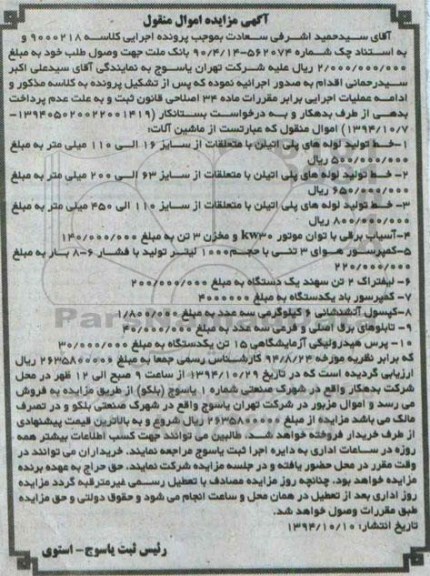 آگهی مزایده اموال منقول
آقای سیدحمید اشرفی سعادت بموجب پرونده اجرایی کلاسه ۹۰۰۰۲۱۸ و
به استناد چک شماره ۵۶۲۰۷۴-۹۰/۴/۱۴ بانک ملت جهت وصول طلب خود به مبلغ
۲/۰۰۰/۰۰۰/۰۰۰ ریال علیه شرکت تهران یاسوج به نمایندگی آقای سیدعلی اکبر
سیدرحمانی اقدام به صدور اجرائیه نموده که پس از تشکیل پرونده به کلاسه مذکور و
ادامه عملیات اجرایی برابر مقررات ماده ۳۴ اصلاحی قانون ثبت و به علت عدم پرداخت
بدهی از طرف بدهکار و به درخواست بستانکار (۱۳۹۴۰۵۰۲۰۰۲۲۰۰۱۴۱۹-
۱۳۹۴/۱۰/۷) اموال منقول که عبارتست از ماشین آلات:
۱-خط تولید لوله های پلی اتیلن با متعلقات از سایز ۱۶ الی ۱۱۰ میلی متر به مبلغ
۵۰۰/۰۰۰/۰۰۰ ریال
۲-خط تولید لوله های پلی اتیلن با متعلقات از سایز ۶۳ الی ۲۰۰ میلی متر به مبلغ
۶۵۰/۰۰۰/۰۰۰ ریال
۳- خط تولید لوله های پلی اتیلن با متعلقات از سایز ۱۱۰ الی ۴۵۰ میلی متر به مبلغ
۸۰۰/۰۰۰/۰۰۰ ریال
۴-آسیاب برقی با توان موتور kw۳۰ و مخزن ۳ تن به مبلغ ۱۴۰/۰۰۰/۰۰۰
۵-کمپرسور هوای ۳ تنی با حجم ۱۰۰۰ لیتر تولید با فشار ۶-۸ بار به مبلغ
۲۲۰/۰۰۰/۰۰۰
۶- لیفتراک ۲ تن سهند یک دستگاه به مبلغ ۲۰۰/۰۰۰/۰۰۰
۷- کمپرسور باد یکدستگاه به مبلغ ۴۰۰۰۰۰۰
۸-کپسول آتشنشانی ۶ کیلوگرمی سه عدد به مبلغ ۱/۸۰۰/۰۰۰
۹- تابلوهای برق اصلی و فرعی سه عدد به مبلغ
۱۰- پرس هیدرولیکی آزمایشگاهی ۱۵ تن یکدستگاه به مبلغ ۳۰/۰۰۰/۰۰۰
که برابر نظریه مورخه ۹۴/۸/۲۴ کارشناس رسمی جمعا به مبلغ ۲۶۳۵۸۰۰۰۰۰ ریال
ارزیابی گردیده است که در تاریخ ۱۳۹۴/۱۰/۲۹ از ساعت ۹ صبح الی ۱۲ ظهر در محل
شرکت بدهکار واقع در شهرک صنعتی شماره ۱ یاسوج (بلکو) از طریق مزایده به فروش
می رسد و اموال مزبور در شرکت تهران یاسوج واقع در شهرک صنعتی بلکو و در تصرف
مالک می باشد مزایده از مبلغ ۲۶۳۵۸۰۰۰۰۰ ریال شروع و به بالاترین قیمت پیشنهادی
از طرف خریدار فروخته خواهد شد. طالبین می توانند جهت کسب اطلاعات بیشتر همه
روزه در ساعات اداری به دایره اجرا ثبت یاسوج مراجعه نمایند. خریداران می توانند در
وقت مقرر در محل حضور یافته و در جلسه مزایده شرکت نمایند. حق حراج به عهده برنده
مزایده خواهد بود. چنانچه روز مزایده مصادف با تعطیل رسمی غیرمترقبه گردد مزایده
روز اداری بعد از تعطیل در همان محل و ساعت انجام می شود و حقوق دولتی و حق مزایده
طبق مقررات وصول خواهد شد.
تاریخ انتشار: ۱۳۹۴/۱۰/۱۰
رئیس ثبت یاسوج- استوی